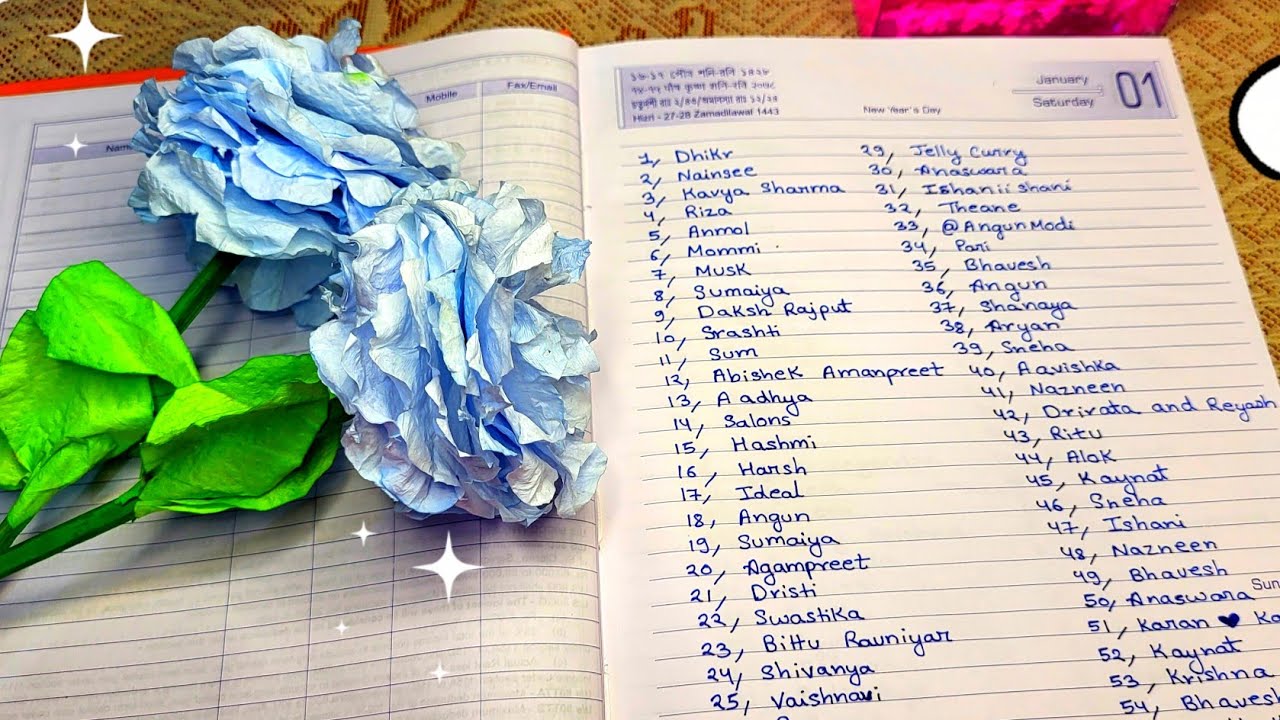 Mobile
Fax/Email
Nam
January
Saturday
01
New Year's Day
Hizri - 27-28 Zamadilawal 1443
1, Dhikr
2, Nainsee
3, Kavya Sharma
4, Riza
5, Anmol
6, Mommi
7, Musk
8, Sumaiya
9, Daksh Rajput
10, Srashti
11, Sum
12, Abishek Amanpreet
13, Aadhya
14, Salons
15, Hashmi
16, Harsh
17, Ideal
18, Angun
19, Sumaiya
20, Agampreet
21, Dristi
22, Swastika
23, Bittu Rauniyar
24, Shivanya
25, Vaishnavi
29, Jelly Curry
30, Anaswara
31, Ishanii shani
32, Theane
33, @AngunModi
34, Pari
35, Bhavesh
36, Angun
37, Shanaya
38, Aryan
39, Sneha
40, Aavishka
41, Nazneen
42, Drivata and Reyash
43, Ritu
44, Alok
45, Kaynat
46, Sneha
47, Ishani
48, Nazneen
49, Bhavesh
50, Anaswara
Sun
51, Karan ♥ Ka
52, Kaynat
53, Krishna
54, Bhaves